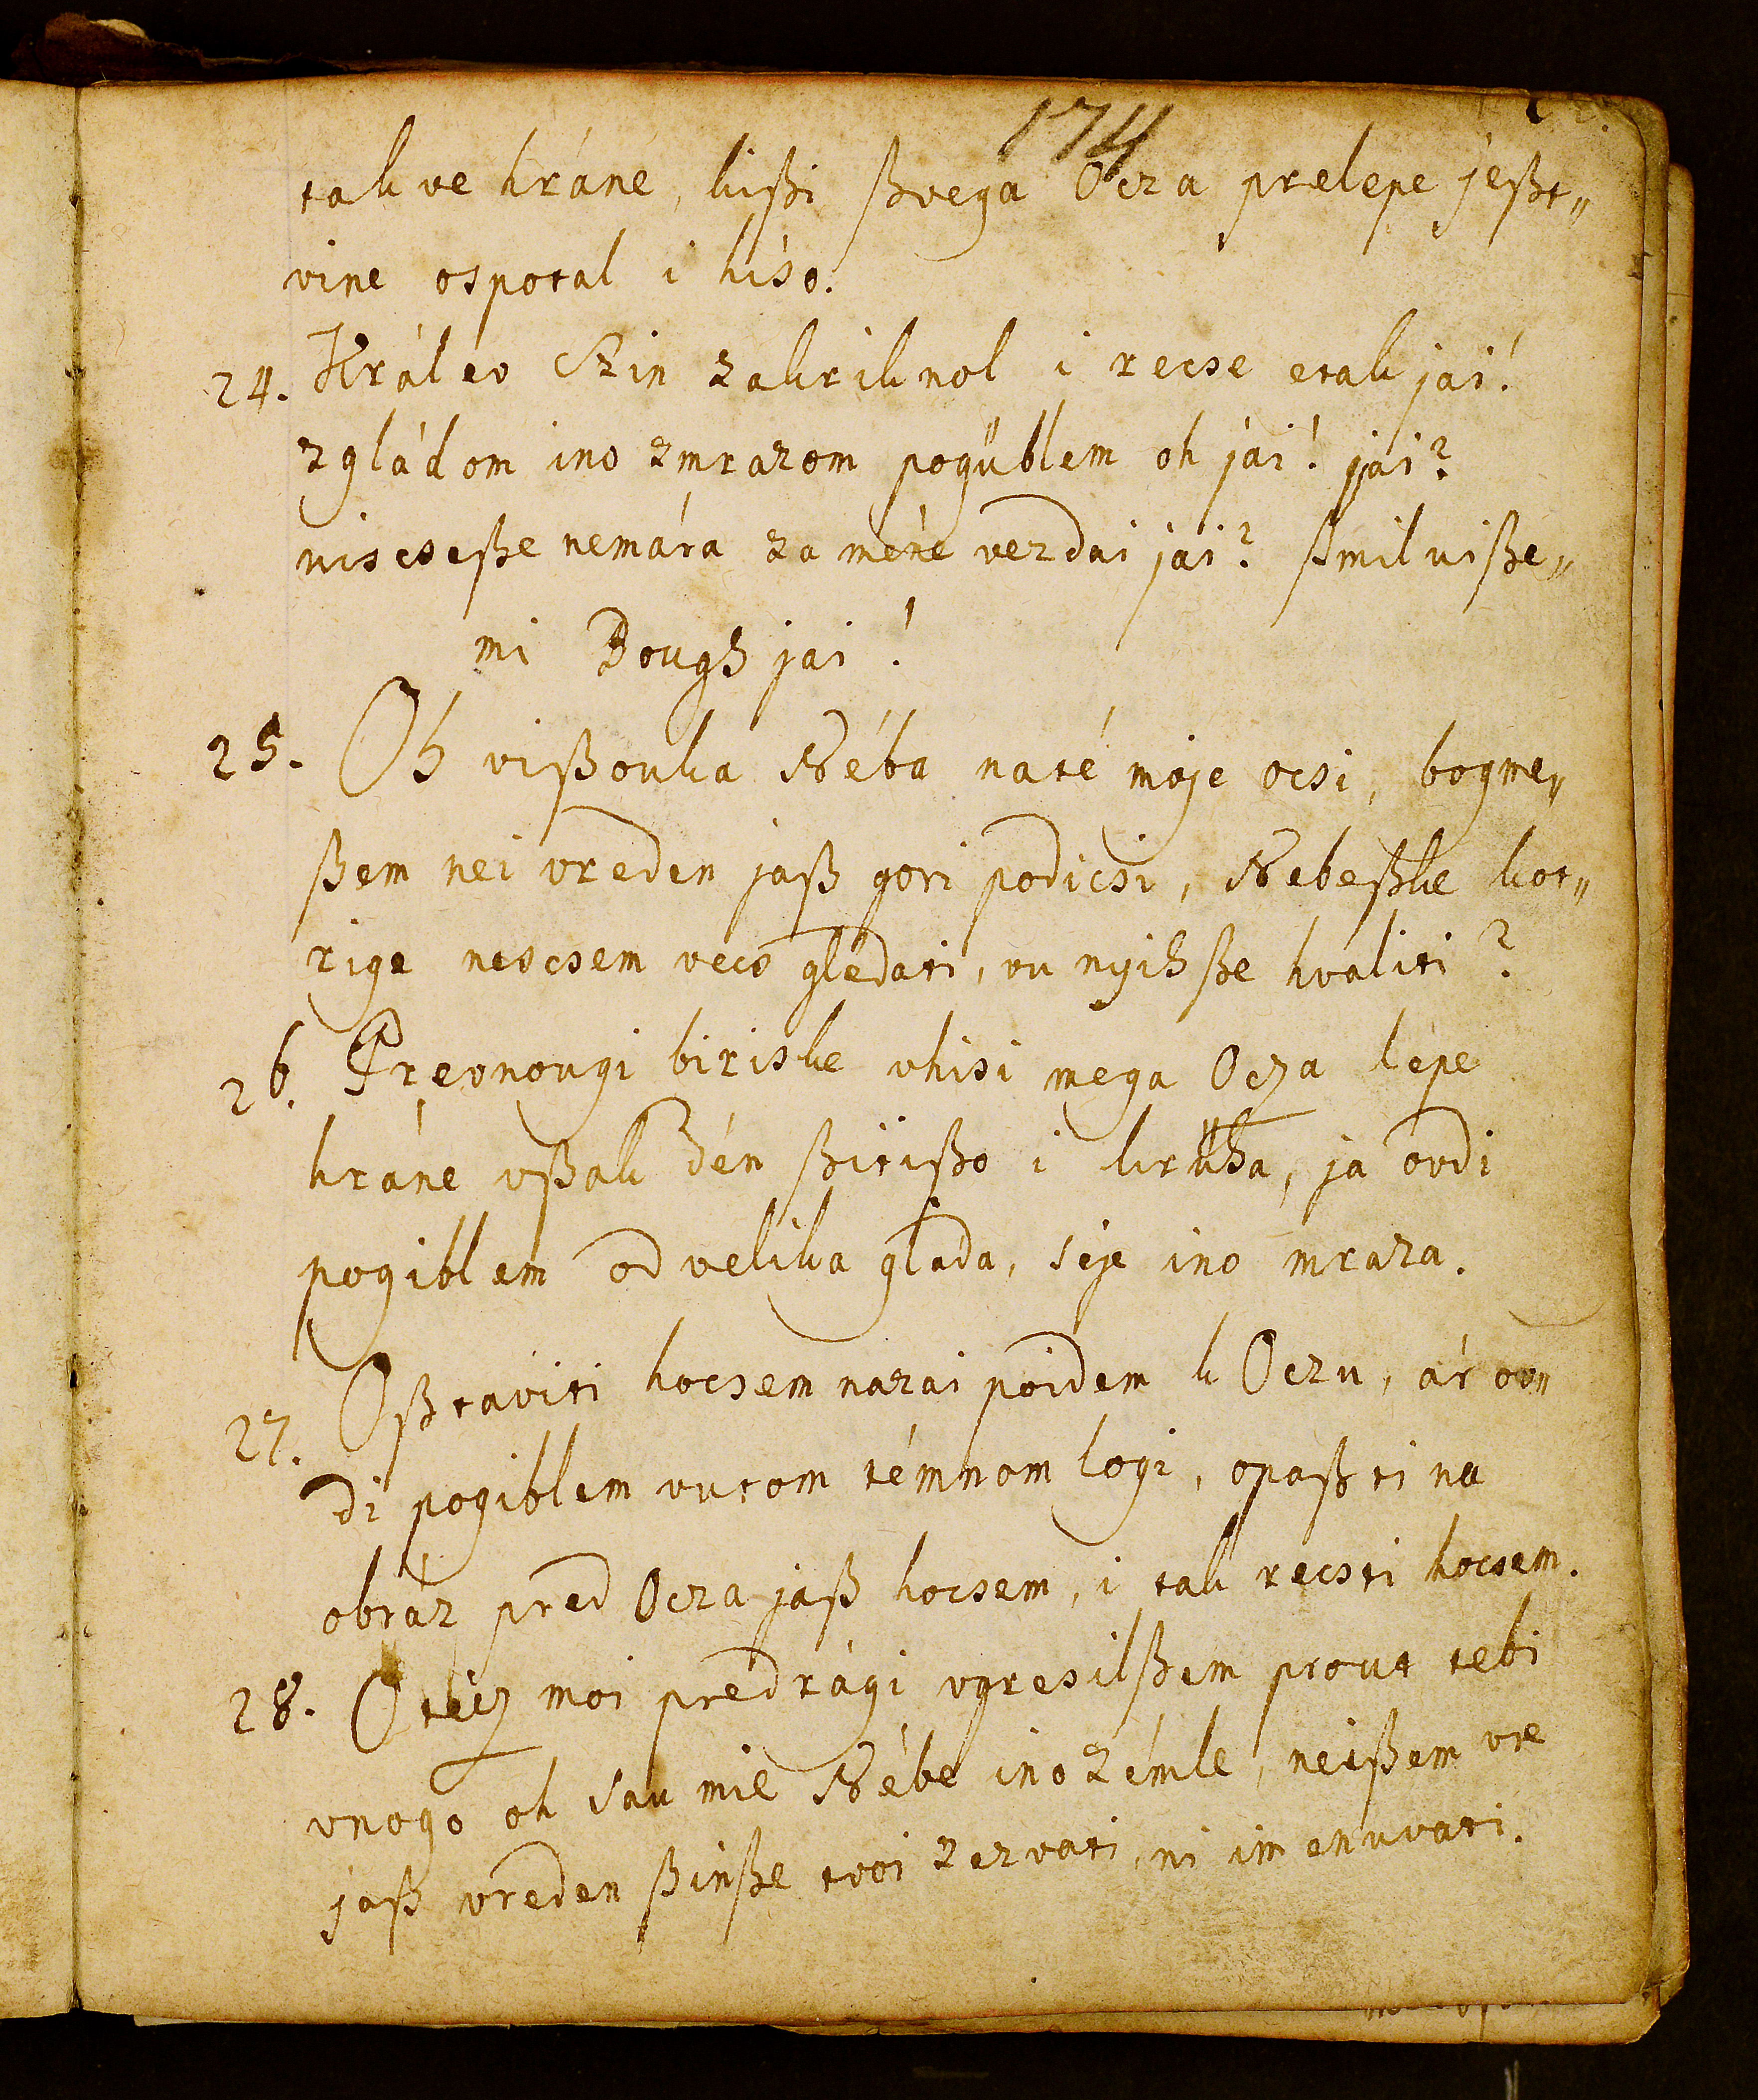 174
takve hráne, kißi ßvega Ocza prelepe jeßt„
vine ospotal i hiso.
24. Králéo Szin zakriknol i recse etak jai!
zgládom ino zmrazom pogüblem oh jái! jái?
niscseße nemára za méne vezdai jai? ßmilniße„
mi Bough jai!
25. Oh vißouka Néba naté moje ocsi, bogme„
ßem nei vreden jaß gori podicsi, Nebeßke kot„
rige nescsem vecs gledati, vu nyih ße hvaliti?
26. Prevnougi biriske vhisi mega Ocza lepe
hráne vßak dén ßitißo i krüha, ja ovdi
pogiblem od velika glada, seje ino mraza.
27. Oßtaviti hocsem nazai poidem k Oczu, ár ov„
di pogiblem vutom témnom logi, opaßti na
obráz pred Ocza jaß hocsem, i tak recsti hocsem.
28. Otecz moi predrági vgresilßem prout tebi
vnogo oh sau mie Nébe ino zémle, neißem vre
jaß vreden ßinße tvoi zezvati, ni imenuvati.